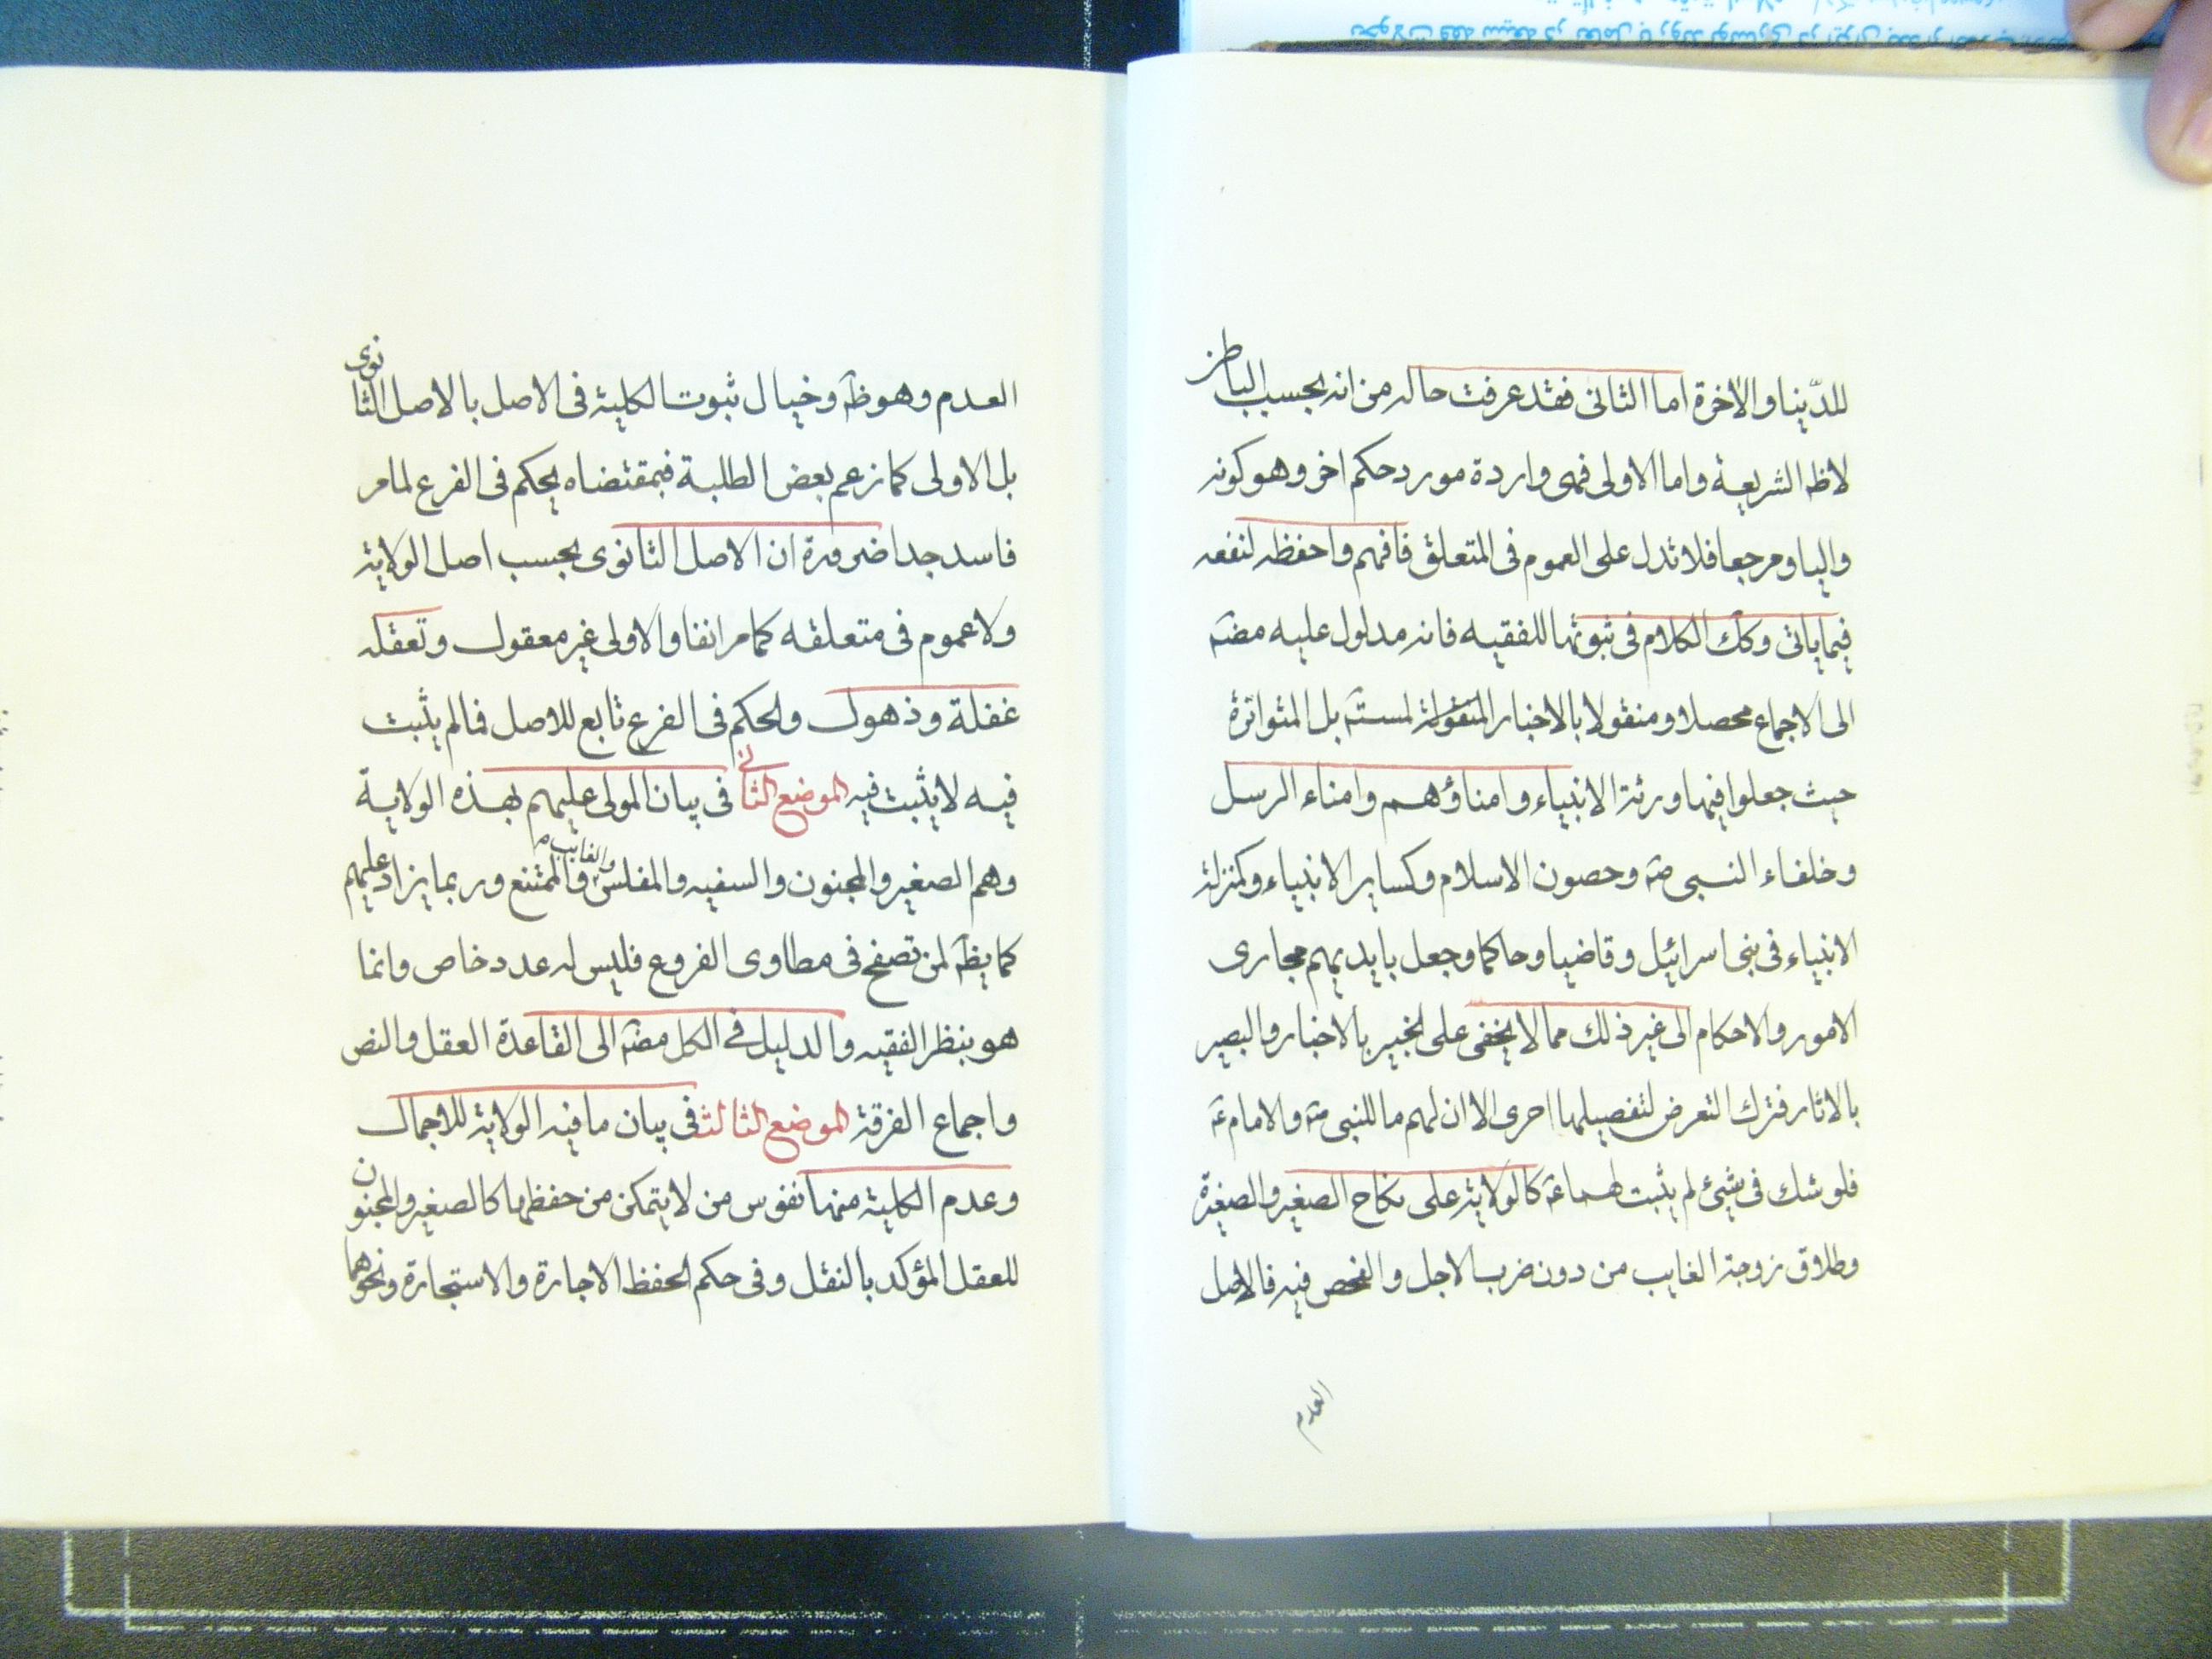 للدّينا والاخرة اما الثانى فقد عرفت حاله من انه بحسب الباطن
لاظه الشريعة واما الاولى فهى واردة مورد حكم اخر وهو كونه
واليا ومرجعا فلا تدل على العموم فى المتعلق فافهم واحفظه لنفعه
فيما ياتى وكك الكلام فى ثبوتها للفقيه فانه مدلول عليه مضآ
الى الاجماع محصلا ومنقولا بالاخبار المنقولة لمستة بل المتواترة
حيث جعلوا فيها ورثة الانبياء وامناؤهم وامناء الرسل
وخلفاء النبى صه وحصون الاسلام وكساير الانبياء وكمنزلة
الانبياء فى بنى اسرائيل وقاضيا وحاكما وجعل بايديهم مجارى
الامور والاحكام الى غير ذلك مما لا يخفى على الخبير بالاخبار والبصير
بالاثار فترك التعرض لتفصيلها احرى الا ان لهم ما للنبى صه والامام عه
فلو شك فى شيئ لم يثبت لهما عه كالولاية على نكاح الصغير والصغيرة
وطلاق زوجة الغايب من دون ضرب الاجل والفحص فيه فالاصل
العدم
العدم وهو ظه وخيال ثبوت الكلية فى الاصل بالاصل الثانوى
بل الاولى كما زعم بعض الطلبة فبمقتضاه يحكم فى الفرع لما مر
فاسد جدا ضرورة ان الاصل الثانوى بحسب اصل الولاية
ولا عموم فى متعلقه كما مر انفا والاولى غير معقول وتعقله
غفلة وذهول والحكم فى الفرع تابع للاصل فما لم يثبت
فيه لا يثبت فيه الموضع الثانى فى بيان المولى عليهم بهذه الولاية
وهم الصغير والمجنون والسفيه والمفلس والغايب والممتنع وربما يزاد عليهم
كما يظه لمن تصفح فى مطاوى الفروع فليس له عدد خاص وانما
هو بنظر الفقيه والدليل فى الكل مضآ الى القاعدة العقل والنص
واجماع الفرقة الموضع الثالث فى بيان ما فيه الولاية للاجمال
وعدم الكلية منها نفوس من لا يتمكن من حفظها كالصغير والمجنون
للعقل المؤكد بالنقل وفى حكم الحفظ الاجارة والاستجارة ونحوهما